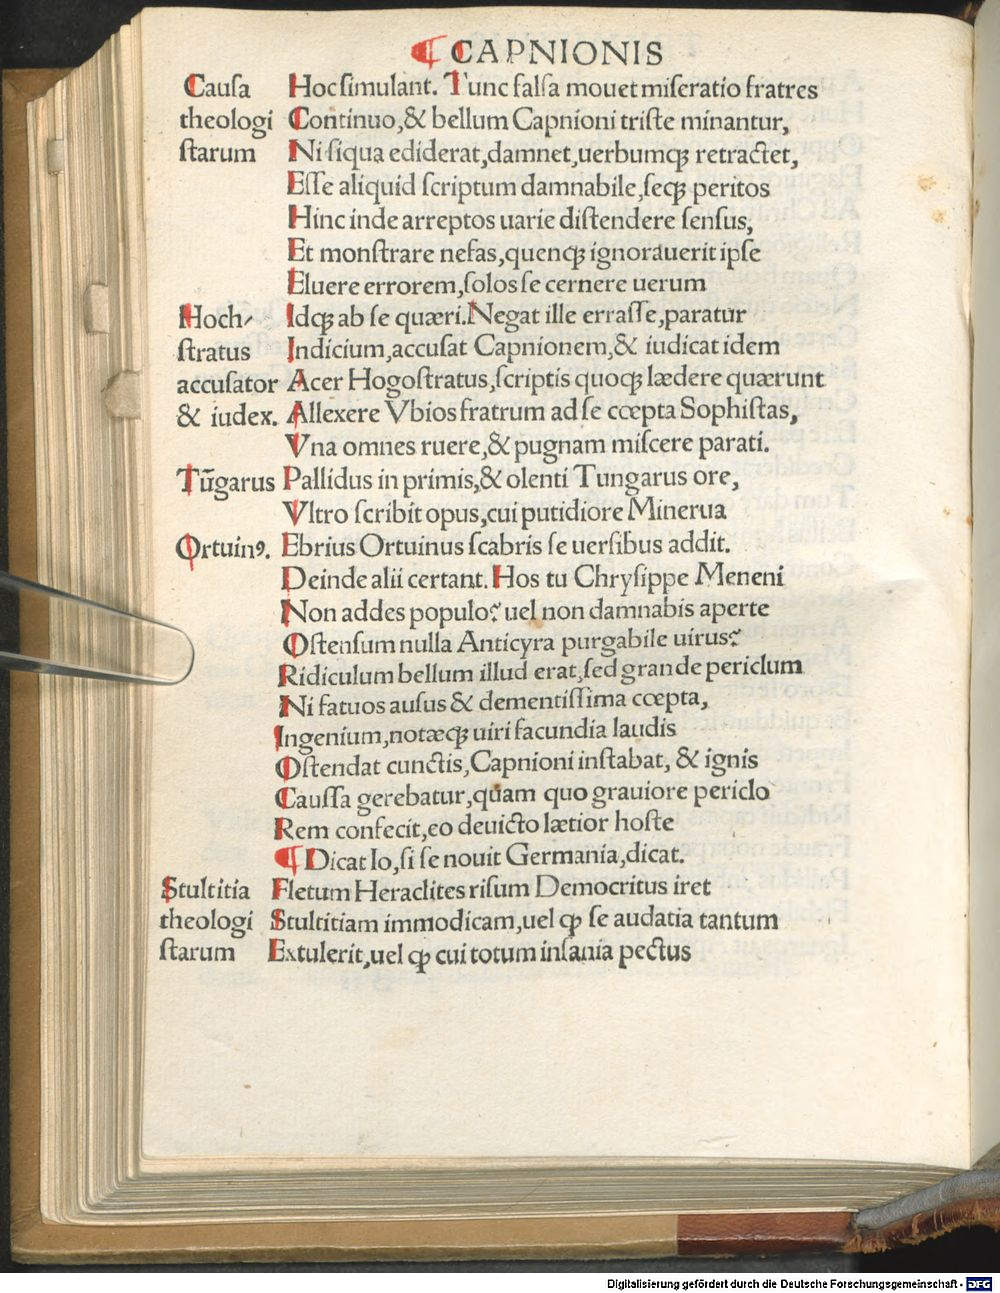 ¶ CAPNIONIS
Cauſa Hoc ſimulant. Tunc falſa mouet miſeratio fratres
theologi Continuo,& bellum Capnioni triſte minantur,
ſtarum Ni ſiqua ediderat,damnet,uerbumqꝫ retractet,
Eſſe aliquid ſcriptum damnabile,ſeqꝫ peritos
Hinc inde arreptos uarie diſtendere ſenſus,
Et monſtrare nefas,quenqꝫ ignorauerit ipſe
Eluere errorem,ſolos ſe cernere uerum
Hoch- Idqꝫ ab ſe quæri.Negat ille erraſſe,paratur
ſtratus Indicium,accuſat Capnionem,& iudicat idem
accuſator Acer Hogoſtratus,ſcriptis quoqꝫ lædere quærunt
& iudex. Allexere Vbios fratrum ad ſe cœpta Sophiſtas,
Vna omnes ruere,& pugnam miſcere parati.
Tūgarus Pallidus in primis,& olenti Tungarus ore,
Vltro ſcribit opus,cui putidiore Minerua
Ortuinꝰ. Ebrius Ortuinus ſcabris ſe uerſibus addit.
Deinde alii certant. Hos tu Chryſippe Meneni
Non addes populo? uel non damnabis aperte
Oſtenſum nulla Anticyra purgabile uirus?
Ridiculum bellum illud erat,ſed grande periclum
Ni fatuos auſus & dementiſſima cœpta,
Ingenium,notæqꝫ uiri facundia laudis
Oſtendat cunctis,Capnioni inſtabat, & ignis
Cauſſa gerebatur,quam quo grauiore periclo
Rem confecit,eo deuicto lætior hoſte
¶ Dicat Io,ſi ſe nouit Germania,dicat.
Stultitia Fletum Heraclites riſum Democritus iret
theologi Stultitiam immodicam,uel ꝙ ſe audatia tantum
ſtarum Extulerit,uel ꝙ cui totum inſania pectus
Digitalisierung gefördert durch die Deutsche Forschungsgemeinschaft - DFG